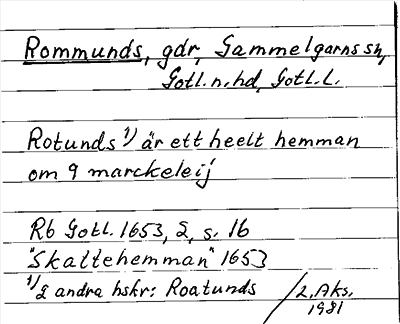 Rommunds, gdr, Gammelgarns sn,
Gotl. n. hd, Gotl. L.
Rotunds 1) är ett heelt hemman
om 9 marckeleij
Rb Gotl. 1653, 2, s. 16
"Skattehemman" 1653
1) 2 andra hskr: Roatunds
L. Aks.
1981